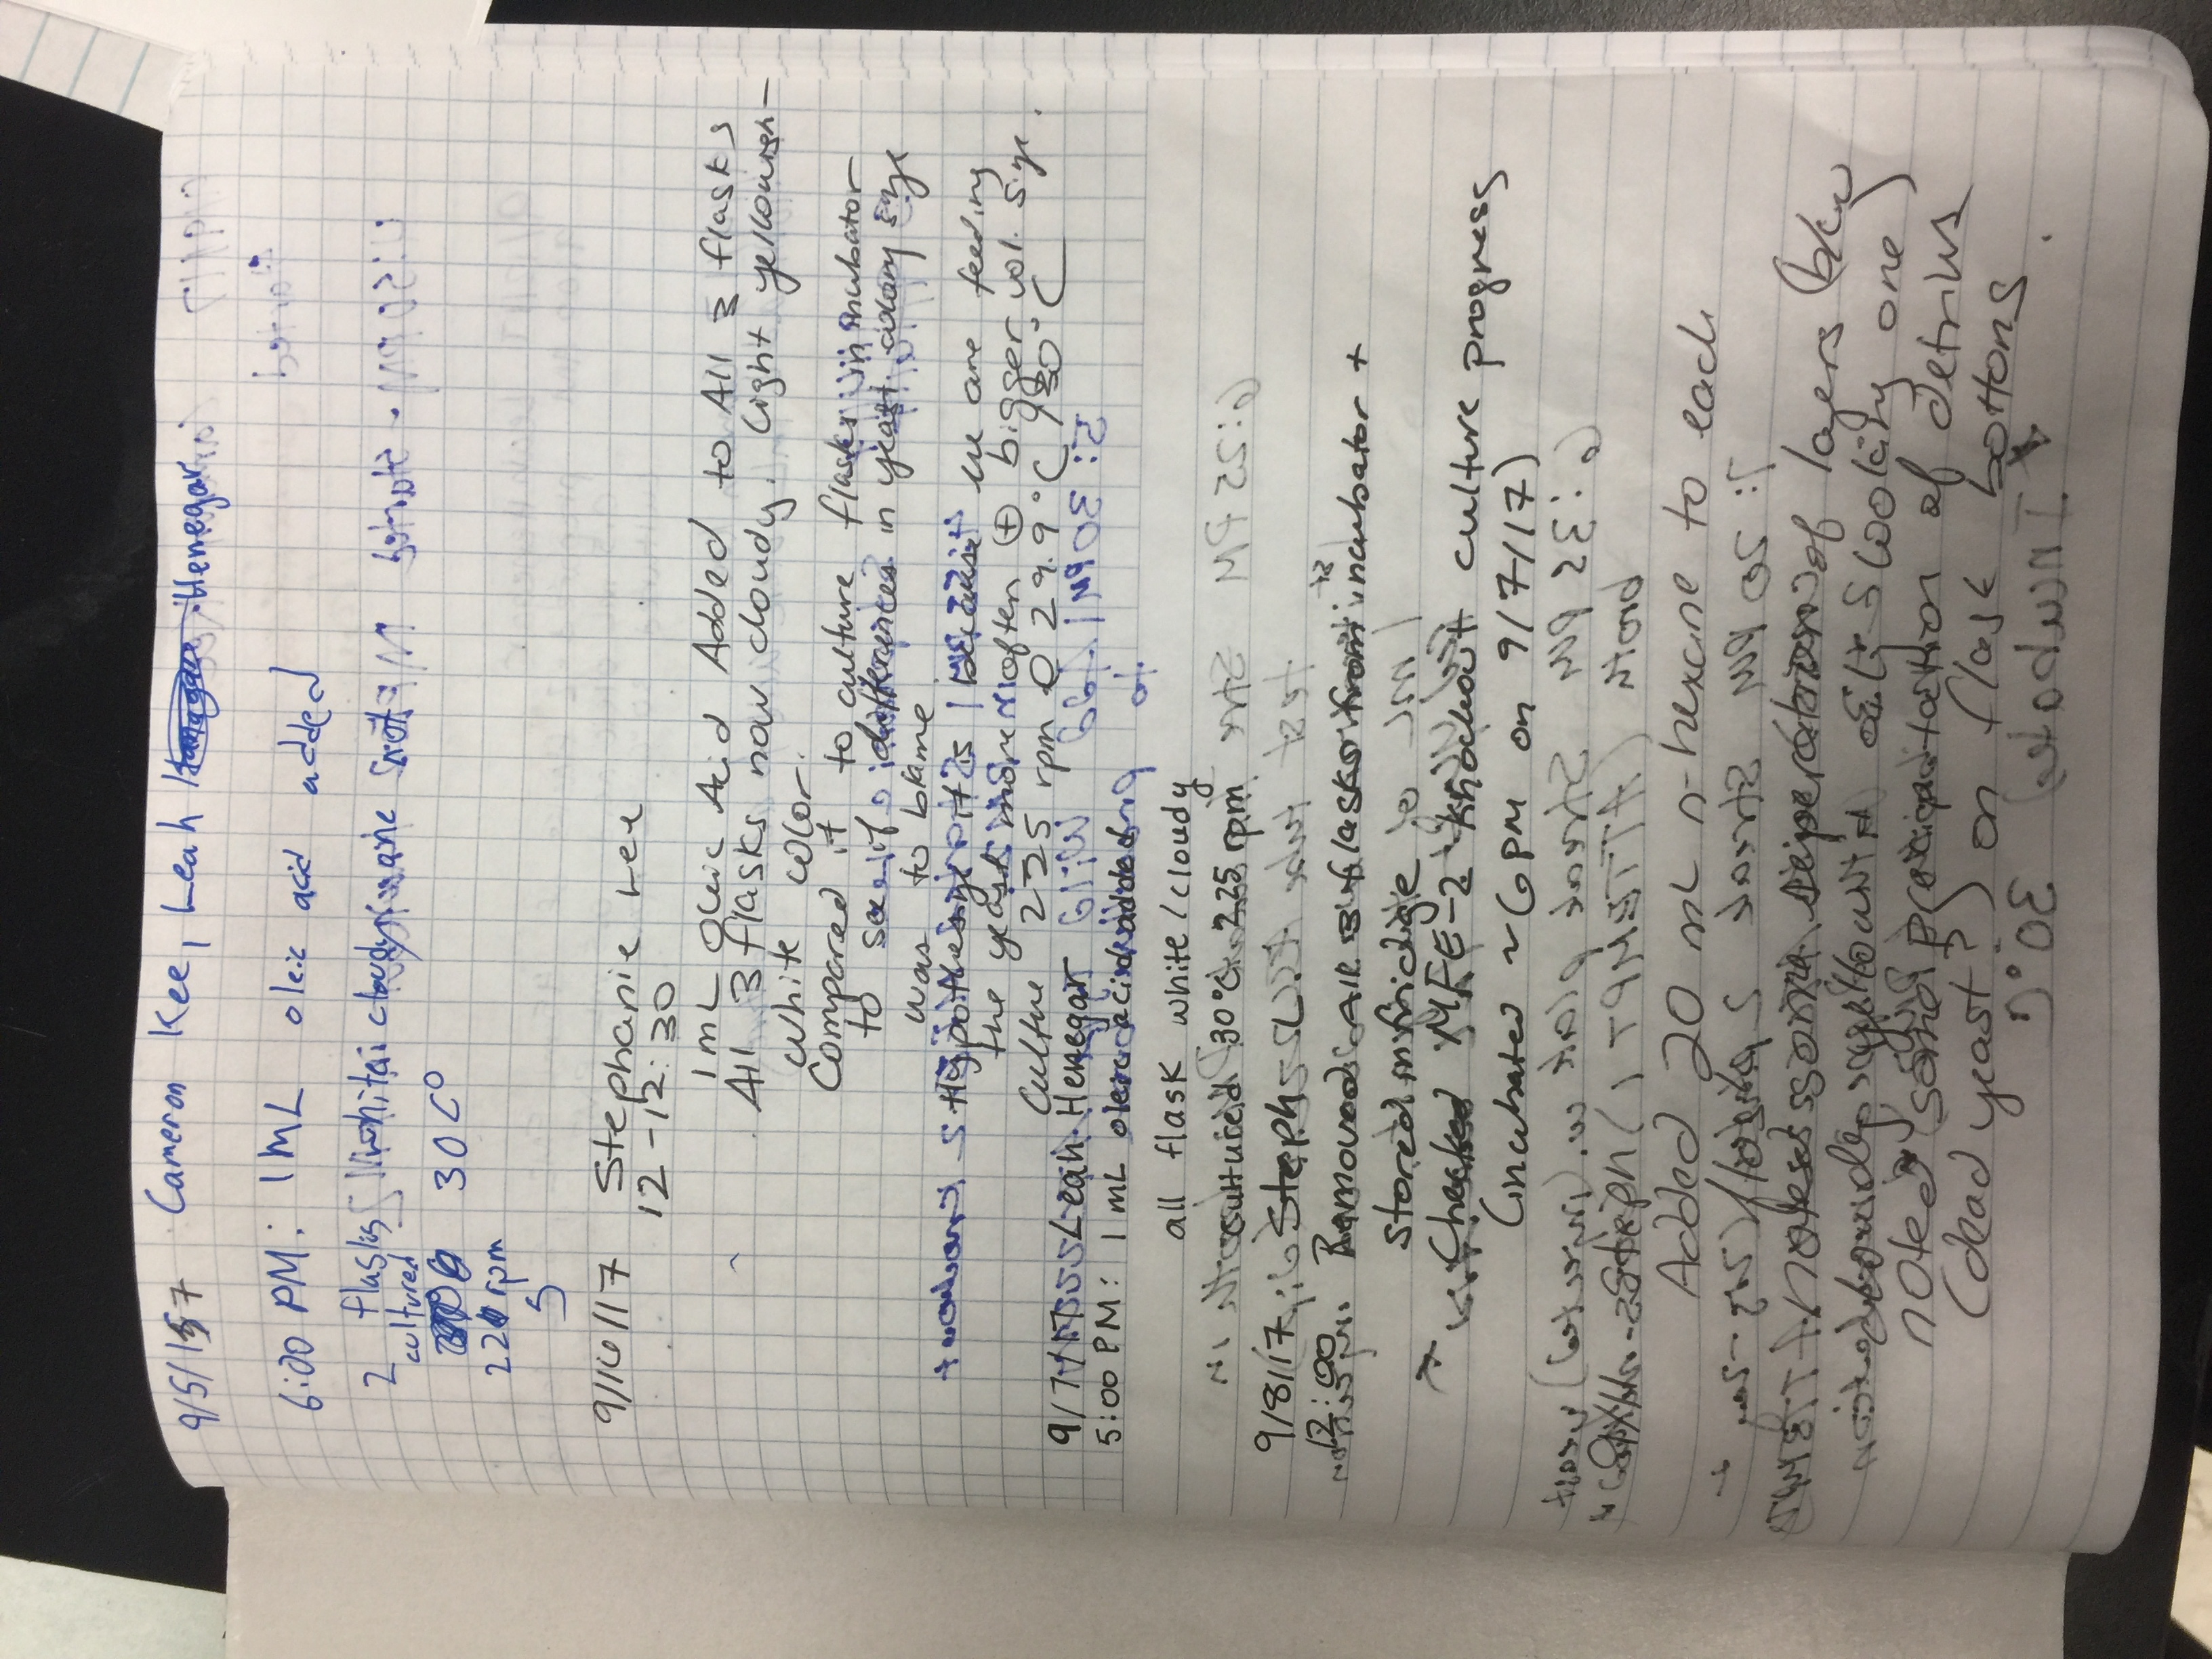 9/5/17 Cameron Kee, Leah Henegar
6:00 PM: 1 mL oleic acid added
2 flasks white, cloudy, one not
cultured
30 C°
225 rpm
9/16/17 Stephanie Lee
12-12:30
1 mL Oleic Acid Added to All 3 flasks
All 3 flasks now cloudy. light yellowish-
white color.
Compared it to culture flasks in incubator
to see if differences in yeast colony size
was to blame
Hypothesize it is because we are feeding
the yeast more often ⊕ bigger vol. size.
Culture 225 rpm @ 29.9°C / 30°C
9/7/17 Leah Henegar
5:00 PM: 1 mL oleic acid added
all flask white/cloudy
cultured 30°C 225 rpm
9/8/17 Steph L.
12:00 Removed All 3 flasks from incubator +
stored in fridge
Checked MFE-2 knockout culture progress
(incubated ~6PM on 9/7/17)
Steph
Added 20 mL n-hexane to each
flask
notes some seperation of layers (btw
cloudy yellow & oily looking one)
noted some precipitation of detritus
(dead yeast?) on flask bottoms.